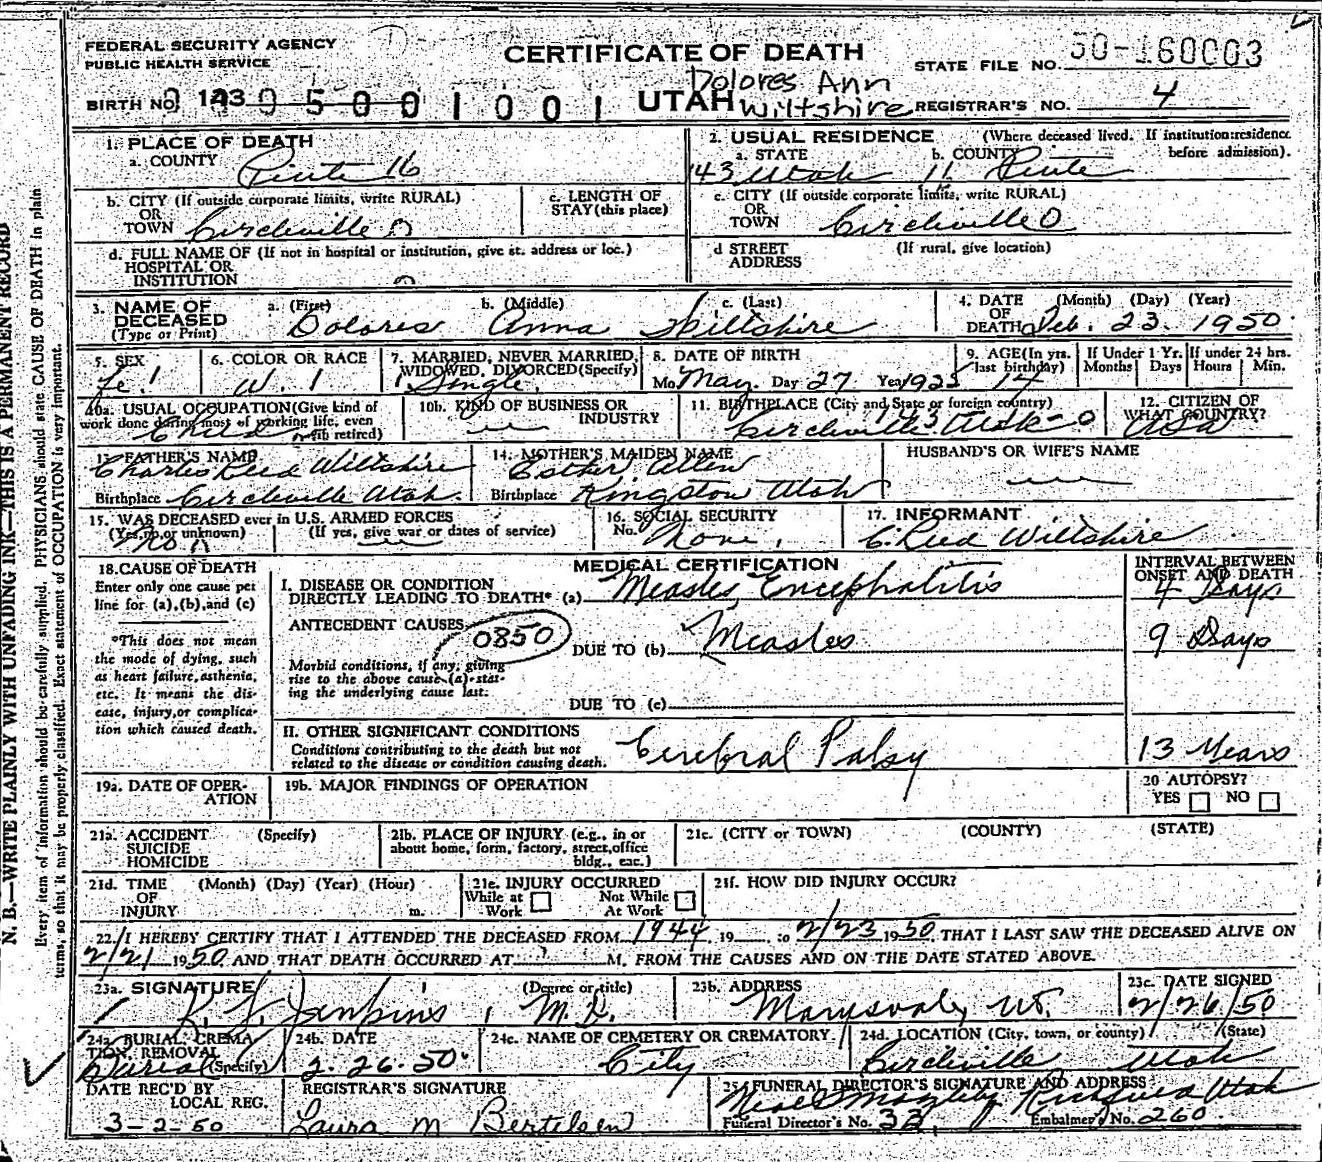 FEDERAL SECURITY AGENCY
PUBLIC HEALTH SERVICE
CERTIFICATE OF DEATH
STATE FILE NO. 50-160003
BIRTH NO. 143 0 5 0 0 1 0 0 1
UTAH
Dolores Ann
Wiltshire
REGISTRAR'S NO. 4
1. PLACE OF DEATH
a. COUNTY
Piute 16
2. USUAL RESIDENCE (Where deceased lived. If institution: residence before admission).
a. STATE b. COUNTY
43 Utah 11 Piute
b. CITY (If outside corporate limits, write RURAL)
OR
TOWN Circleville 0
c. LENGTH OF
STAY (this place)
c. CITY (If outside corporate limits, write RURAL)
OR
TOWN Circleville 0
d. FULL NAME OF (If not in hospital or institution, give st. address or loc.)
HOSPITAL OR
INSTITUTION 0
d STREET (If rural, give location)
ADDRESS
3. NAME OF
DECEASED
(Type or Print)
a. (First) b. (Middle) c. (Last)
Dolores Anna Wiltshire
4. DATE (Month) (Day) (Year)
OF
DEATH Feb. 23. 1950.
5. SEX
Fe 1
6. COLOR OR RACE
W. 1
7. MARRIED, NEVER MARRIED,
WIDOWED, DIVORCED (Specify)
1 Single.
8. DATE OF BIRTH
Mo. May. Day 27 Year 1935
9. AGE (In yrs.
last birthday)
14
If Under 1 Yr.
Months Days
If under 24 hrs.
Hours Min.
10a. USUAL OCCUPATION (Give kind of
work done during most of working life, even
if retired)
Child
10b. KIND OF BUSINESS OR
INDUSTRY
11. BIRTHPLACE (City and State or foreign country)
43
Circleville Utah 0
12. CITIZEN OF
WHAT COUNTRY?
USA
13. FATHER'S NAME
Charles Reed Wiltshire
Birthplace Circleville Utah.
14. MOTHER'S MAIDEN NAME
Esther Allen
Birthplace Kingston Utah
HUSBAND'S OR WIFE'S NAME
15. WAS DECEASED ever in U.S. ARMED FORCES
(Yes, no, or unknown) (If yes, give war or dates of service)
No
16. SOCIAL SECURITY
No. None.
17. INFORMANT
C. Reed Wiltshire
18. CAUSE OF DEATH
Enter only one cause per
line for (a), (b), and (c)
*This does not mean
the mode of dying, such
as heart failure, asthenia,
etc. It means the dis-
ease, injury, or complica-
tion which caused death.
MEDICAL CERTIFICATION
INTERVAL BETWEEN
ONSET AND DEATH
I. DISEASE OR CONDITION
DIRECTLY LEADING TO DEATH* (a) Measles, Encephalitis
4 Days
ANTECEDENT CAUSES
0850
DUE TO (b) Measles
9 Days
Morbid conditions, if any, giving
rise to the above cause (a) stat-
ing the underlying cause last.
DUE TO (c)
II. OTHER SIGNIFICANT CONDITIONS
Conditions contributing to the death but not
related to the disease or condition causing death.
Cerebral Palsy
13 Years
19a. DATE OF OPER-
ATION
19b. MAJOR FINDINGS OF OPERATION
20 AUTOPSY?
YES NO
21a. ACCIDENT (Specify)
SUICIDE
HOMICIDE
21b. PLACE OF INJURY (e.g., in or
about home, form, factory, street, office
bldg., eac.)
21c. (CITY or TOWN) (COUNTY) (STATE)
21d. TIME (Month) (Day) (Year) (Hour)
OF
INJURY m.
21e. INJURY OCCURRED
While at Work Not While At Work
21f. HOW DID INJURY OCCUR?
22. I HEREBY CERTIFY THAT I ATTENDED THE DECEASED FROM 1944, 19 to 2/23 1950. THAT I LAST SAW THE DECEASED ALIVE ON
2/21 1950 AND THAT DEATH OCCURRED AT M. FROM THE CAUSES AND ON THE DATE STATED ABOVE.
23a. SIGNATURE (Degree or title)
Jenkins, M.D.
23b. ADDRESS
Marysvale, Ut.
23c. DATE SIGNED
2/26/50
24a. BURIAL, CREMA-
TION, REMOVAL
(Specify)
Burial
24b. DATE
2.26.50.
24c. NAME OF CEMETERY OR CREMATORY
City
24d. LOCATION (City, town, or county) (State)
Circleville Utah
DATE REC'D BY
LOCAL REG.
3-2-50
REGISTRAR'S SIGNATURE
Laura M Bertelsen
25. FUNERAL DIRECTOR'S SIGNATURE AND ADDRESS
Richfield Utah
Funeral Director's No. 33 Embalmer's No. 260.
N. B.—WRITE PLAINLY WITH UNFADING INK—THIS IS A PERMANENT RECORD
Every item of information should be carefully supplied. PHYSICIANS should state CAUSE OF DEATH in plain
terms, so that it may be properly classified. Exact statement of OCCUPATION is very important.